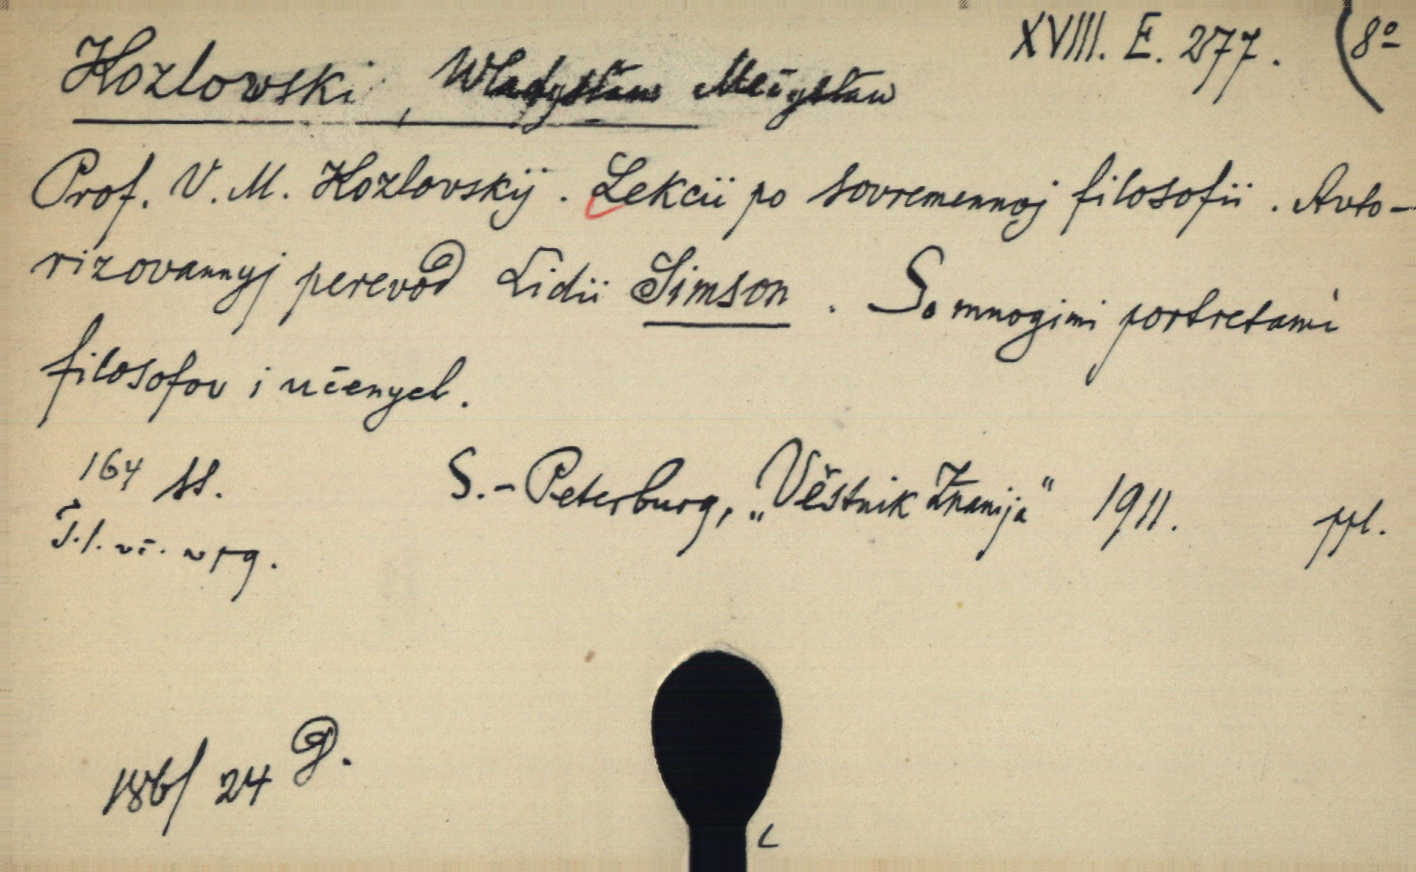 XVIII. E. 277. (8º
Kozlowski, Władysław Mečysław
Prof. V. M. Kozlovskij. Lekcii po sovremennoj filosofii. Avto-
rizovannyj perevod Lidii Simson. So mnogimi portretami
filosofov i učenych.
164 ss. S.-Peterburg, „Věstnik Znanija" 1911. ppl.
186/24 D.